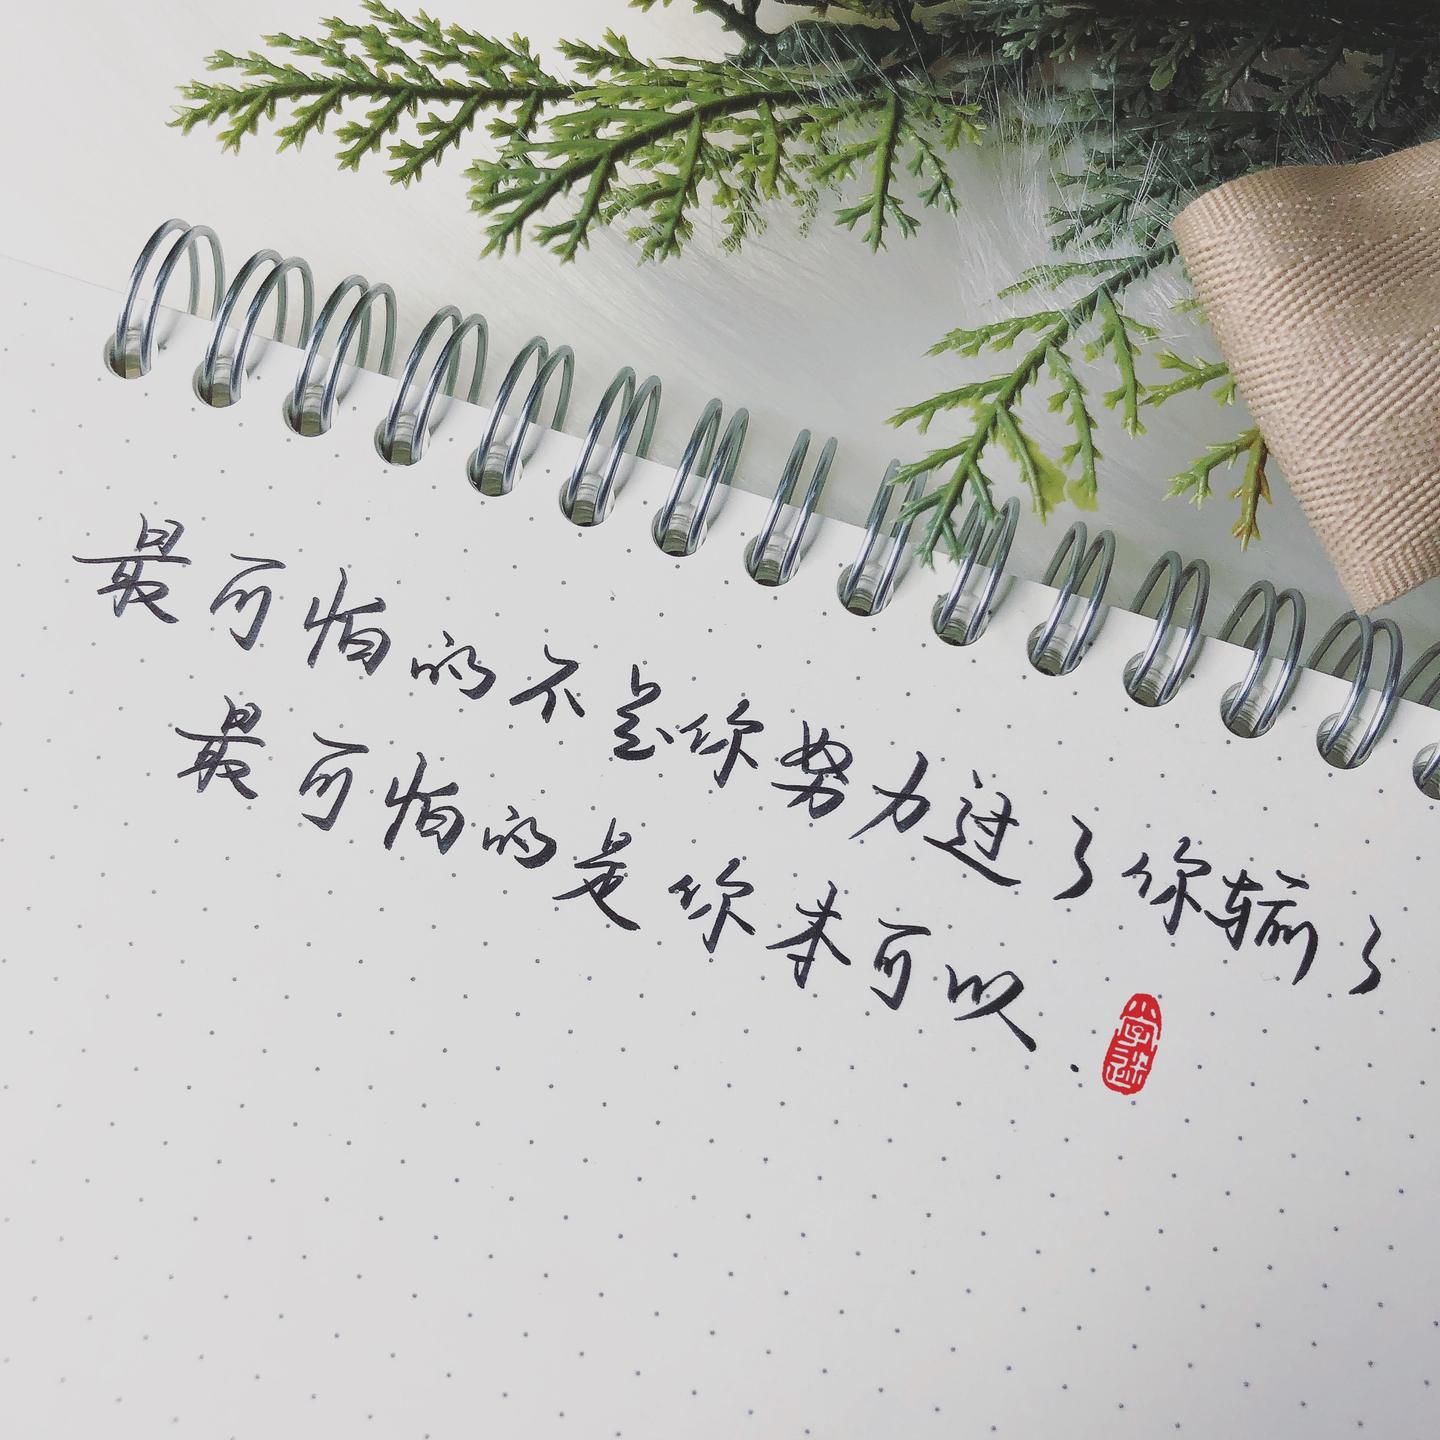 最可怕的不是你努力过了你输了
最可怕的是你本可以.